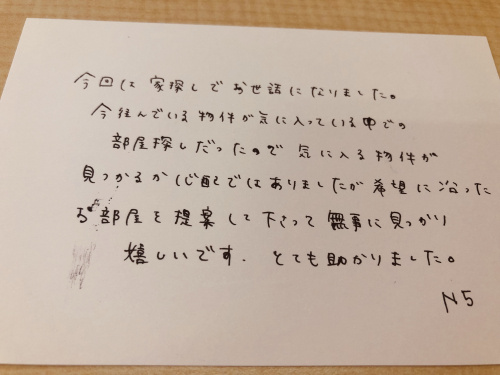 今回は家探しでお世話になりました。
今住んでいる物件が気に入っている中での
部屋探しだったので気に入る物件が
見つかるか心配ではありましたが希望に沿った
お部屋を提案して下さって無事に見つかり
嬉しいです。とても助かりました。
N5